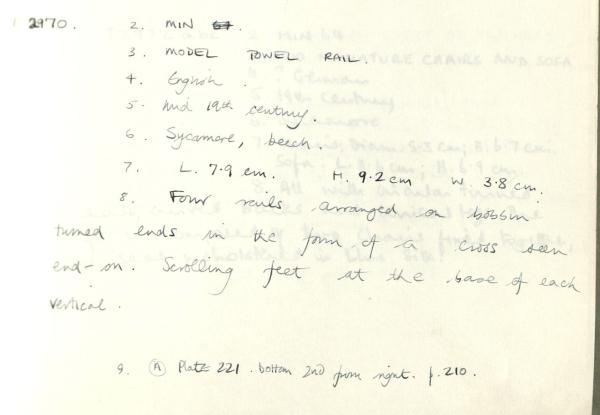 2970. 2. MIN 67.
3. MODEL TOWEL RAIL.
4. English.
5. Mid 19th century.
6. Sycamore, beech.
7. L. 7.9 cm. H. 9.2 cm W. 3.8 cm.
8. Four rails arranged on bobbin
turned ends in the form of a cross seen
end-on. Scrolling feet at the base of each
vertical.
9. (A) Plate 221. bottom 2nd from right. p. 210.